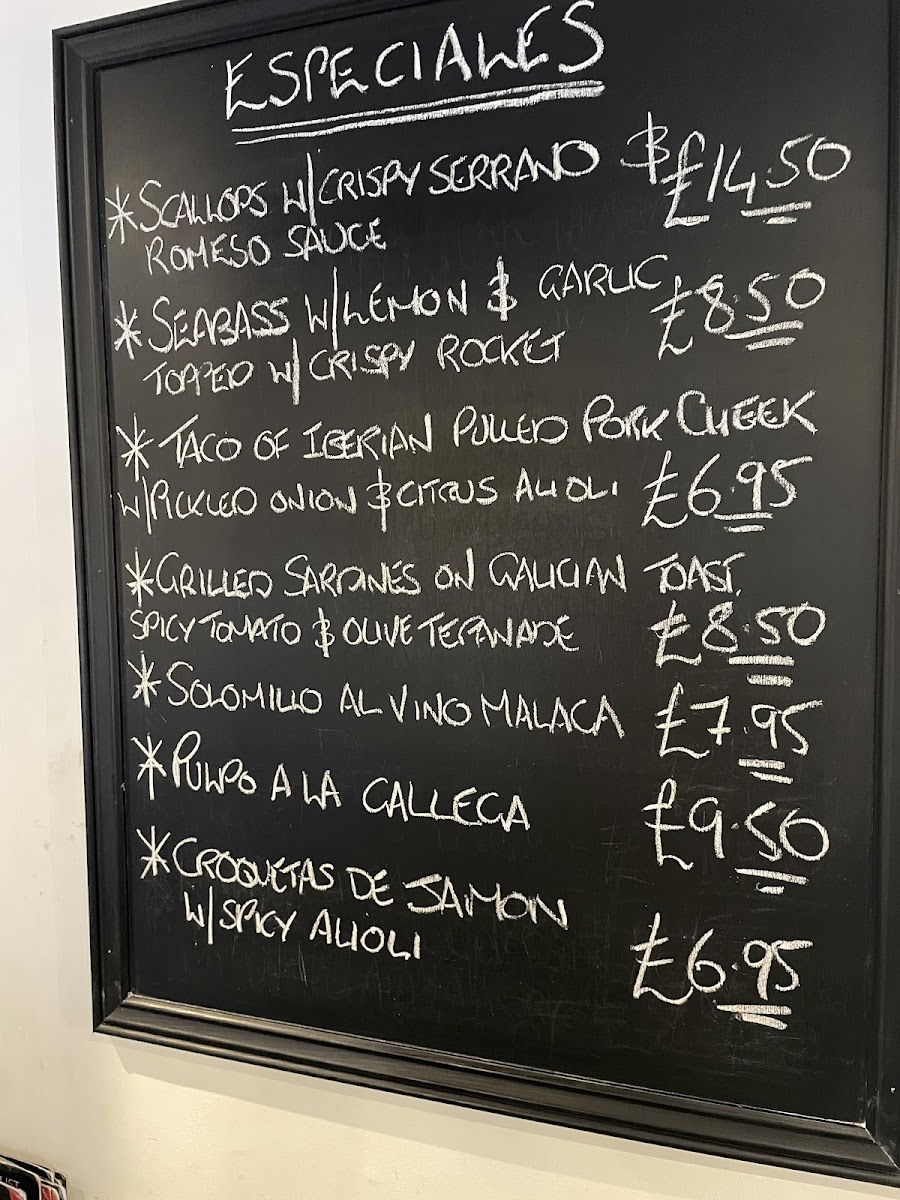 ESPECIALES
*SCALLOPS W/CRISPY SERRANO & £14.50
ROMESO SAUCE
*SEABASS W/LEMON & GARLIC £8.50
TOPPED W/CRISPY ROCKET
*TACO OF IBERIAN PULLED PORK CHEEK
W/PICKLED ONION & CITRUS ALIOLI £6.95
*GRILLED SARDINES ON GALICIAN TOAST,
SPICY TOMATO & OLIVE TEPANADE £8.50
*SOLOMILLO AL VINO MALAGA £7.95
*PULPO A LA GALLEGA £9.50
*CROQUETAS DE JAMON
W/SPICY ALIOLI £6.95
LIST